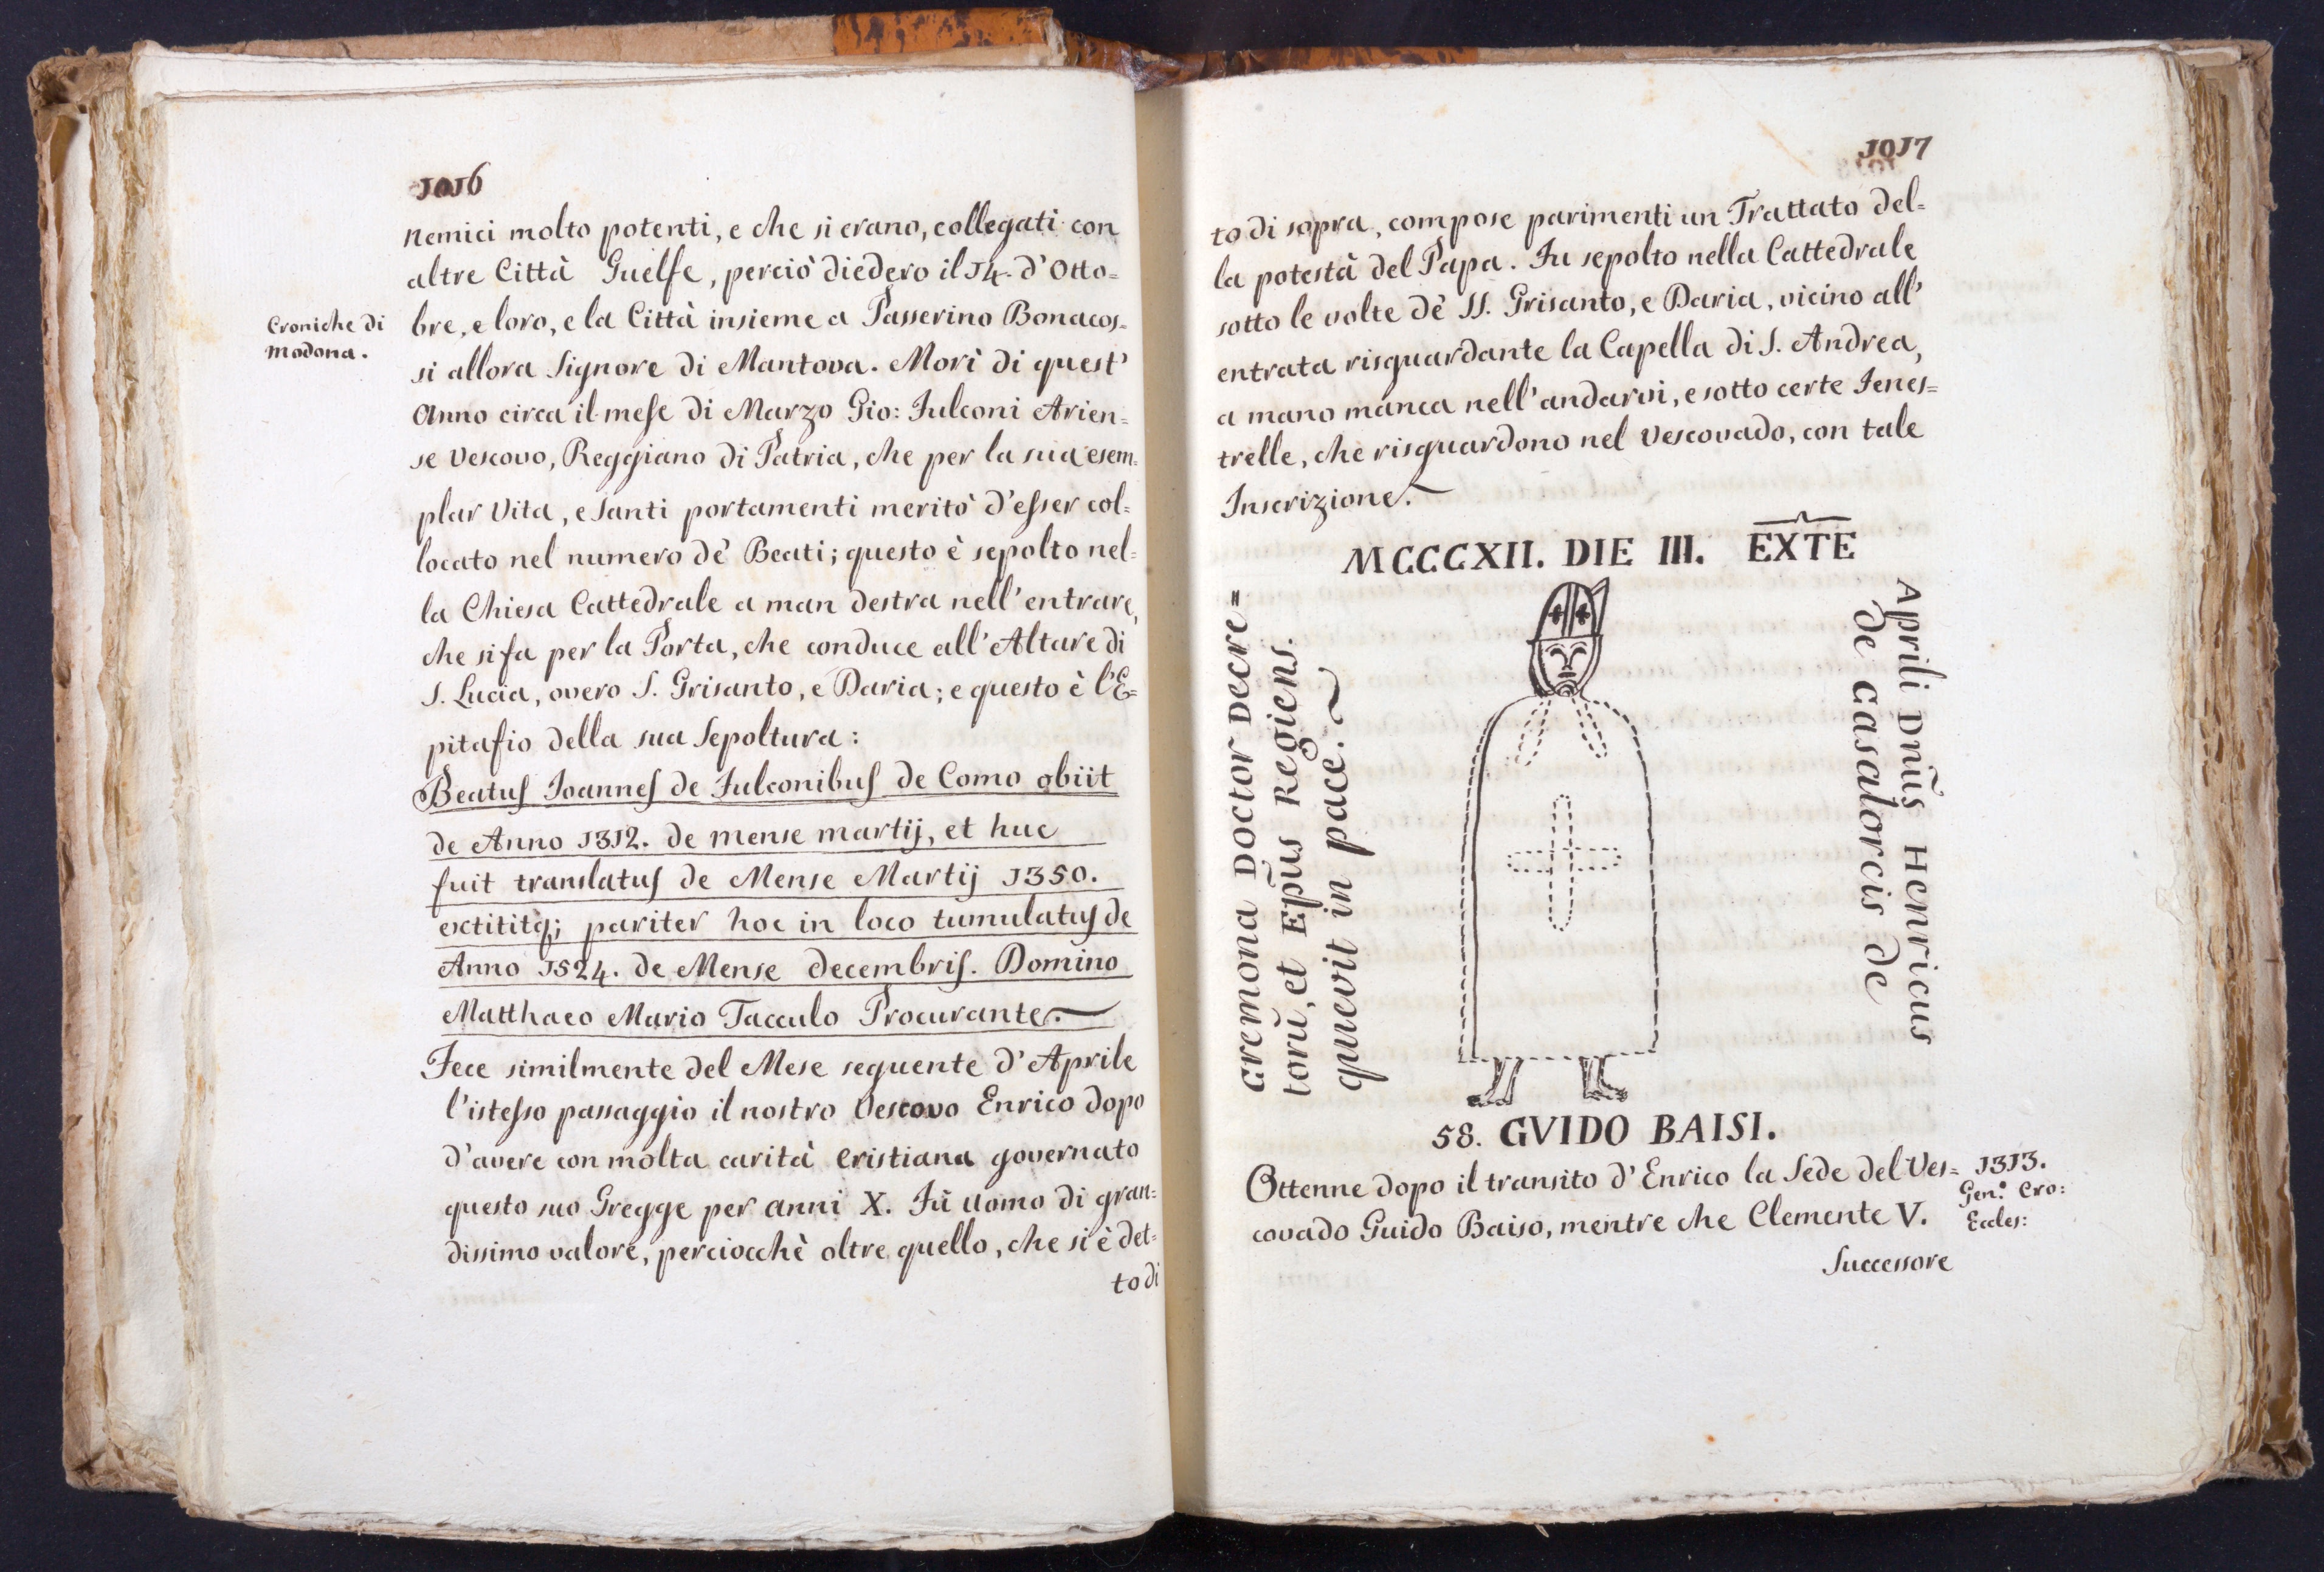 1016
nemici molto potenti, e che si erano, collegati con
altre Città Guelfe, perciò diedero il 14. d'Otto=
Croniche di
Modona.
bre, e loro, e la Città insieme a Passerino Bonacos=
si allora Signore di Mantova. Morì di quest'
Anno circa il mese di Marzo Gio: Fulconi Arien=
se Vescovo, Reggiano di Patria, che per la sua esem=
plar Vita, e Santi portamenti meritò d'esser col=
locato nel numero de' Beati; questo è sepolto nel=
la Chiesa Cattedrale a man destra nell'entrare,
che si fa per la Porta, che conduce all'Altare di
S. Lucia, overo S. Grisanto, e Daria; e questo è l'E=
pitafio della sua Sepoltura:
Beatus Joannes de Fulconibus de Como obiit
de Anno 1312. de mense martij, et huc
fuit translatus de Mense Martij 1350.
extititq; pariter hoc in loco tumulatus de
Anno 1524. de Mense decembris. Domino
Matthaeo Mario Tacculo Procurante.
Fece similmente del Mese seguente d'Aprile
l'istesso passaggio il nostro Vescovo Enrico dopo
d'avere con molta carità Cristiana governato
questo suo Gregge per anni X. Fù uomo di gran=
dissimo valore, perciocchè oltre quello, che si è det=
to di
1017
to di sopra, compose parimenti un Trattato del=
la potestà del Papa. Fu sepolto nella Cattedrale
sotto le volte de' SS. Grisanto, e Daria, vicino all'
entrata risguardante la Capella di S. Andrea,
a mano manca nell'andarvi, e sotto certe Fenes=
trelle, che risguardono nel Vescovado, con tale
Inscrizione.
MCCCXII. DIE III. EXTE
Aprili Dñus Henricus
de Casalorcis de
Cremona Doctor Decre=
torũ, et Epũs Regiens.
quievit in pace.
58. GVIDO BAISI.
Ottenne dopo il transito d'Enrico la Sede del Ves=
covado Guido Baiso, mentre che Clemente V.
1313.
Gen.º Cro:
Eccles:
Successore